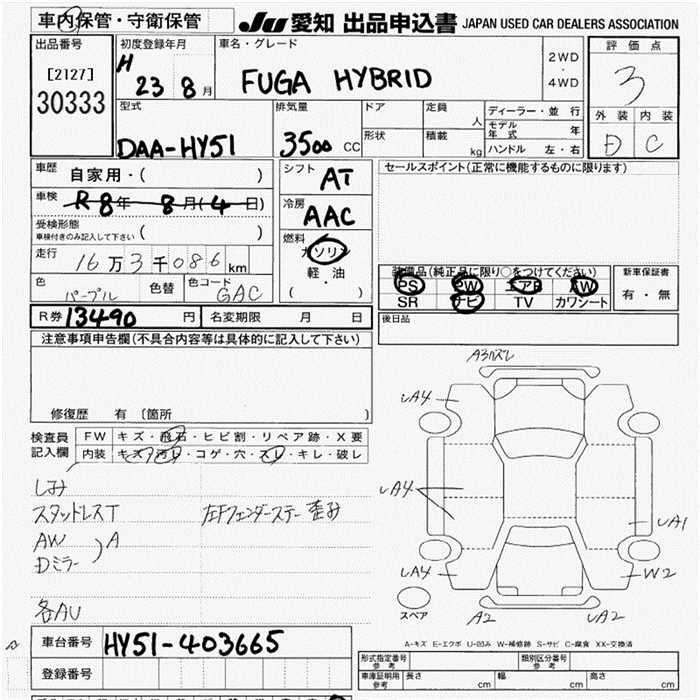 車内保管・守衛保管 JU 愛知 出品申込書 JAPAN USED CAR DEALERS ASSOCIATION
出品番号 初度登録年月 車名・グレード 評価点
[2127] H 23 8 月 FUGA HYBRID 2WD ・ 4WD 3
30333
型式 排気量 ドア 定員 人 ディーラー・並行 外装 内装
DAA-HY51 3500 CC 形状 積載 kg モデル年式 年 D C
ハンドル 左・右
車歴 自家用・( ) シフト AT セールスポイント(正常に機能するものに限ります)
車検 R 8年 8月(4日) 冷房 AAC
受検形態 車検付きのみ記入して下さい ( )
燃料 ガソリン 軽・油 ( ・ )
走行 16万3千086km 装備品(純正品に限り○をつけてください) 新車保証書
色 パープル 色替 色コード GAC PS PW エアB AW 有・無
SR ナビ TV カワシート
R券 13490 円 名変期限 月 日 後日品
注意事項申告欄(不具合内容等は具体的に記入して下さい)
修復歴 有 〔箇所 〕
検査員記入欄 FW キズ・飛石・ヒビ割・リペア跡・X要
内装 キズ・汚レ・コゲ・穴・スレ・キレ・破レ
しみ
スタッドレスT 左Fフェンダーステー歪み
AW
Dミラー ) A
各AU
A3ハズレ
UA4
UA4
UA1
UA4 W2
スペア A2 UA2
A-キズ E-エクボ U-凹み W-補修跡 S-サビ C-腐食 XX-交換済
車台番号 HY51-403665
登録番号
形式指定番号 参考 類別区分番号 参考
車庫証明用 参考 長さ cm 幅 cm 高さ cm